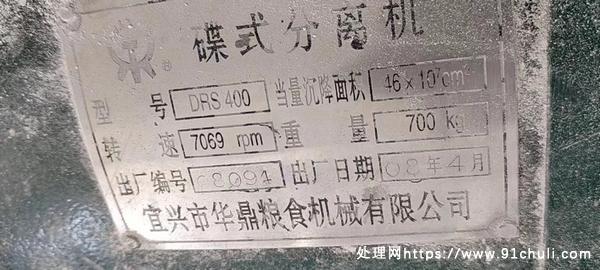 碟式分离机
型号 DRS 400 当量沉降面积 46×10⁷cm²
转速 7069 rpm 重量 700 kg
出厂编号 C8094 出厂日期 08年4月
宜兴市华鼎粮食机械有限公司
处理网https://www.91chuli.com/